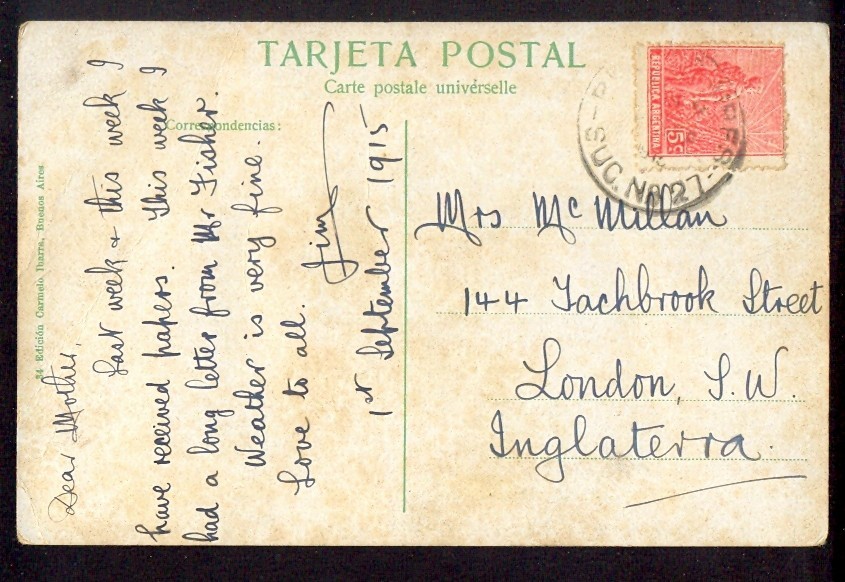 TARJETA POSTAL
Carte postale universelle
Correspondencias:
34 Edición Carmelo Ibarra, Buenos Aires
Dear Mother,
Last week & this week I
have received papers. This week I
had a long letter from Mr Fisher.
Weather is very fine.
Love to all.
Jim
1st September 1915
REPUBLICA ARGENTINA
5c
SUC. No 27
Mrs McMillan
144 Tachbrook Street
London, S.W.
Inglaterra.